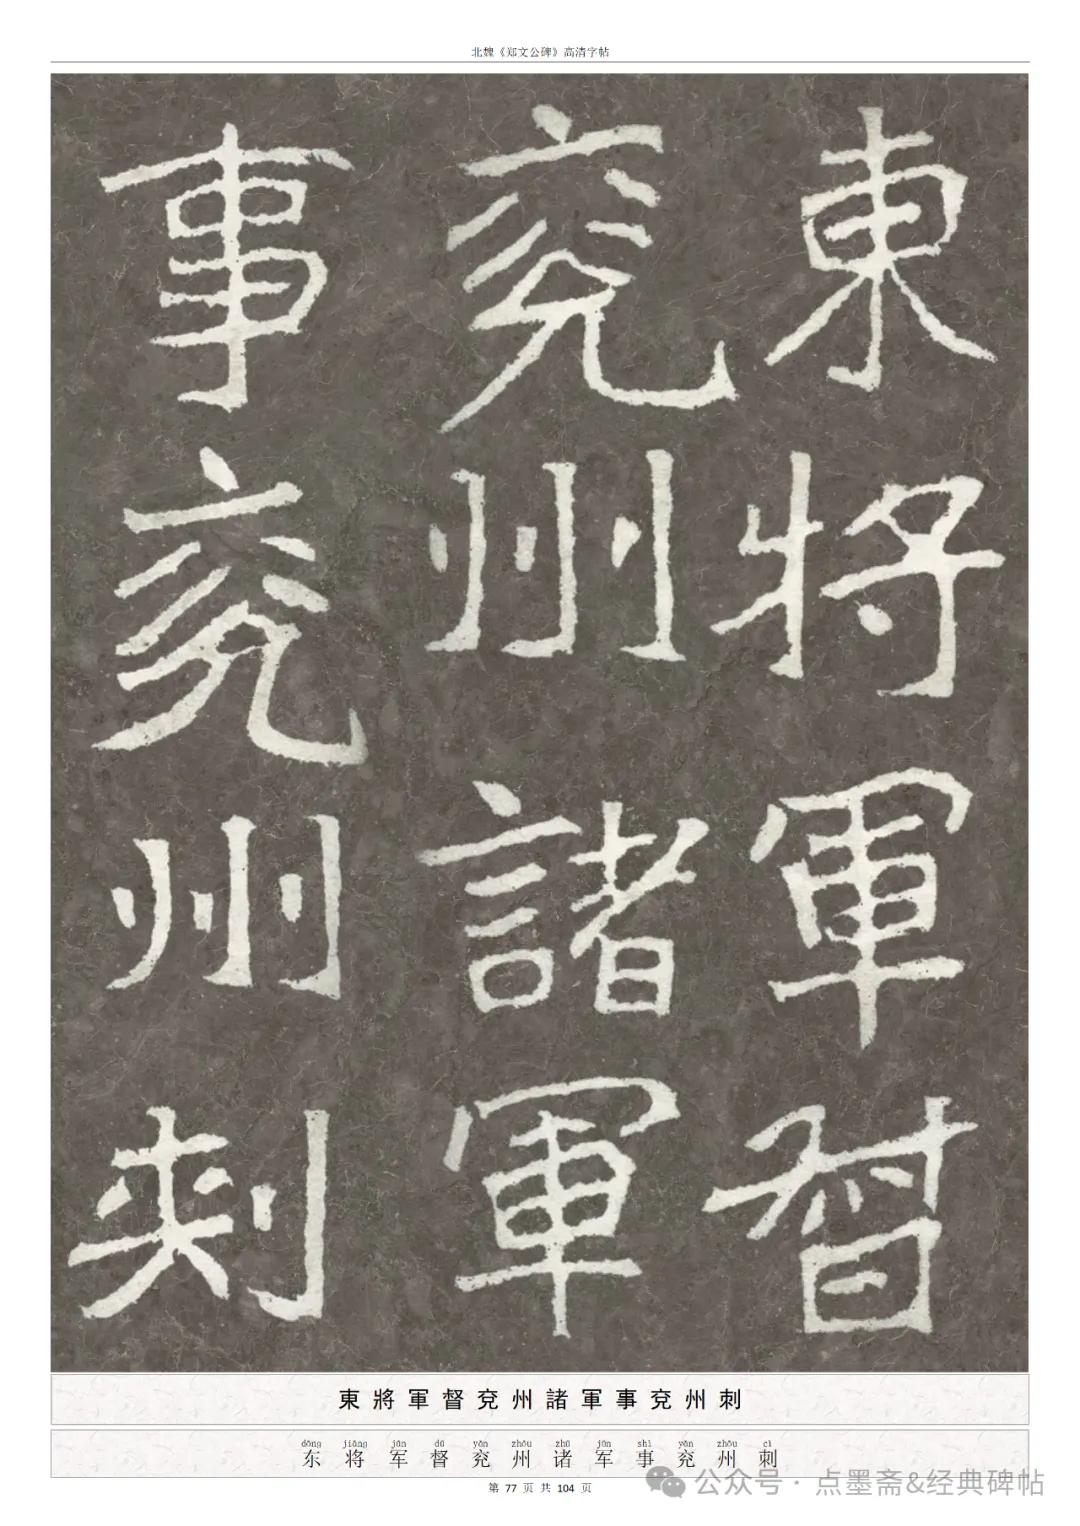 北魏《郑文公碑》高清字帖
東將軍督
兖州諸軍
事兖州刺
東將軍督兖州諸軍事兖州刺
dōng jiāng jūn dū yǎn zhōu zhū jūn shì yǎn zhōu cì
东将军督兖州诸军事兖州刺
第 77 页 共 104 页
公众号 · 点墨斋&经典碑帖